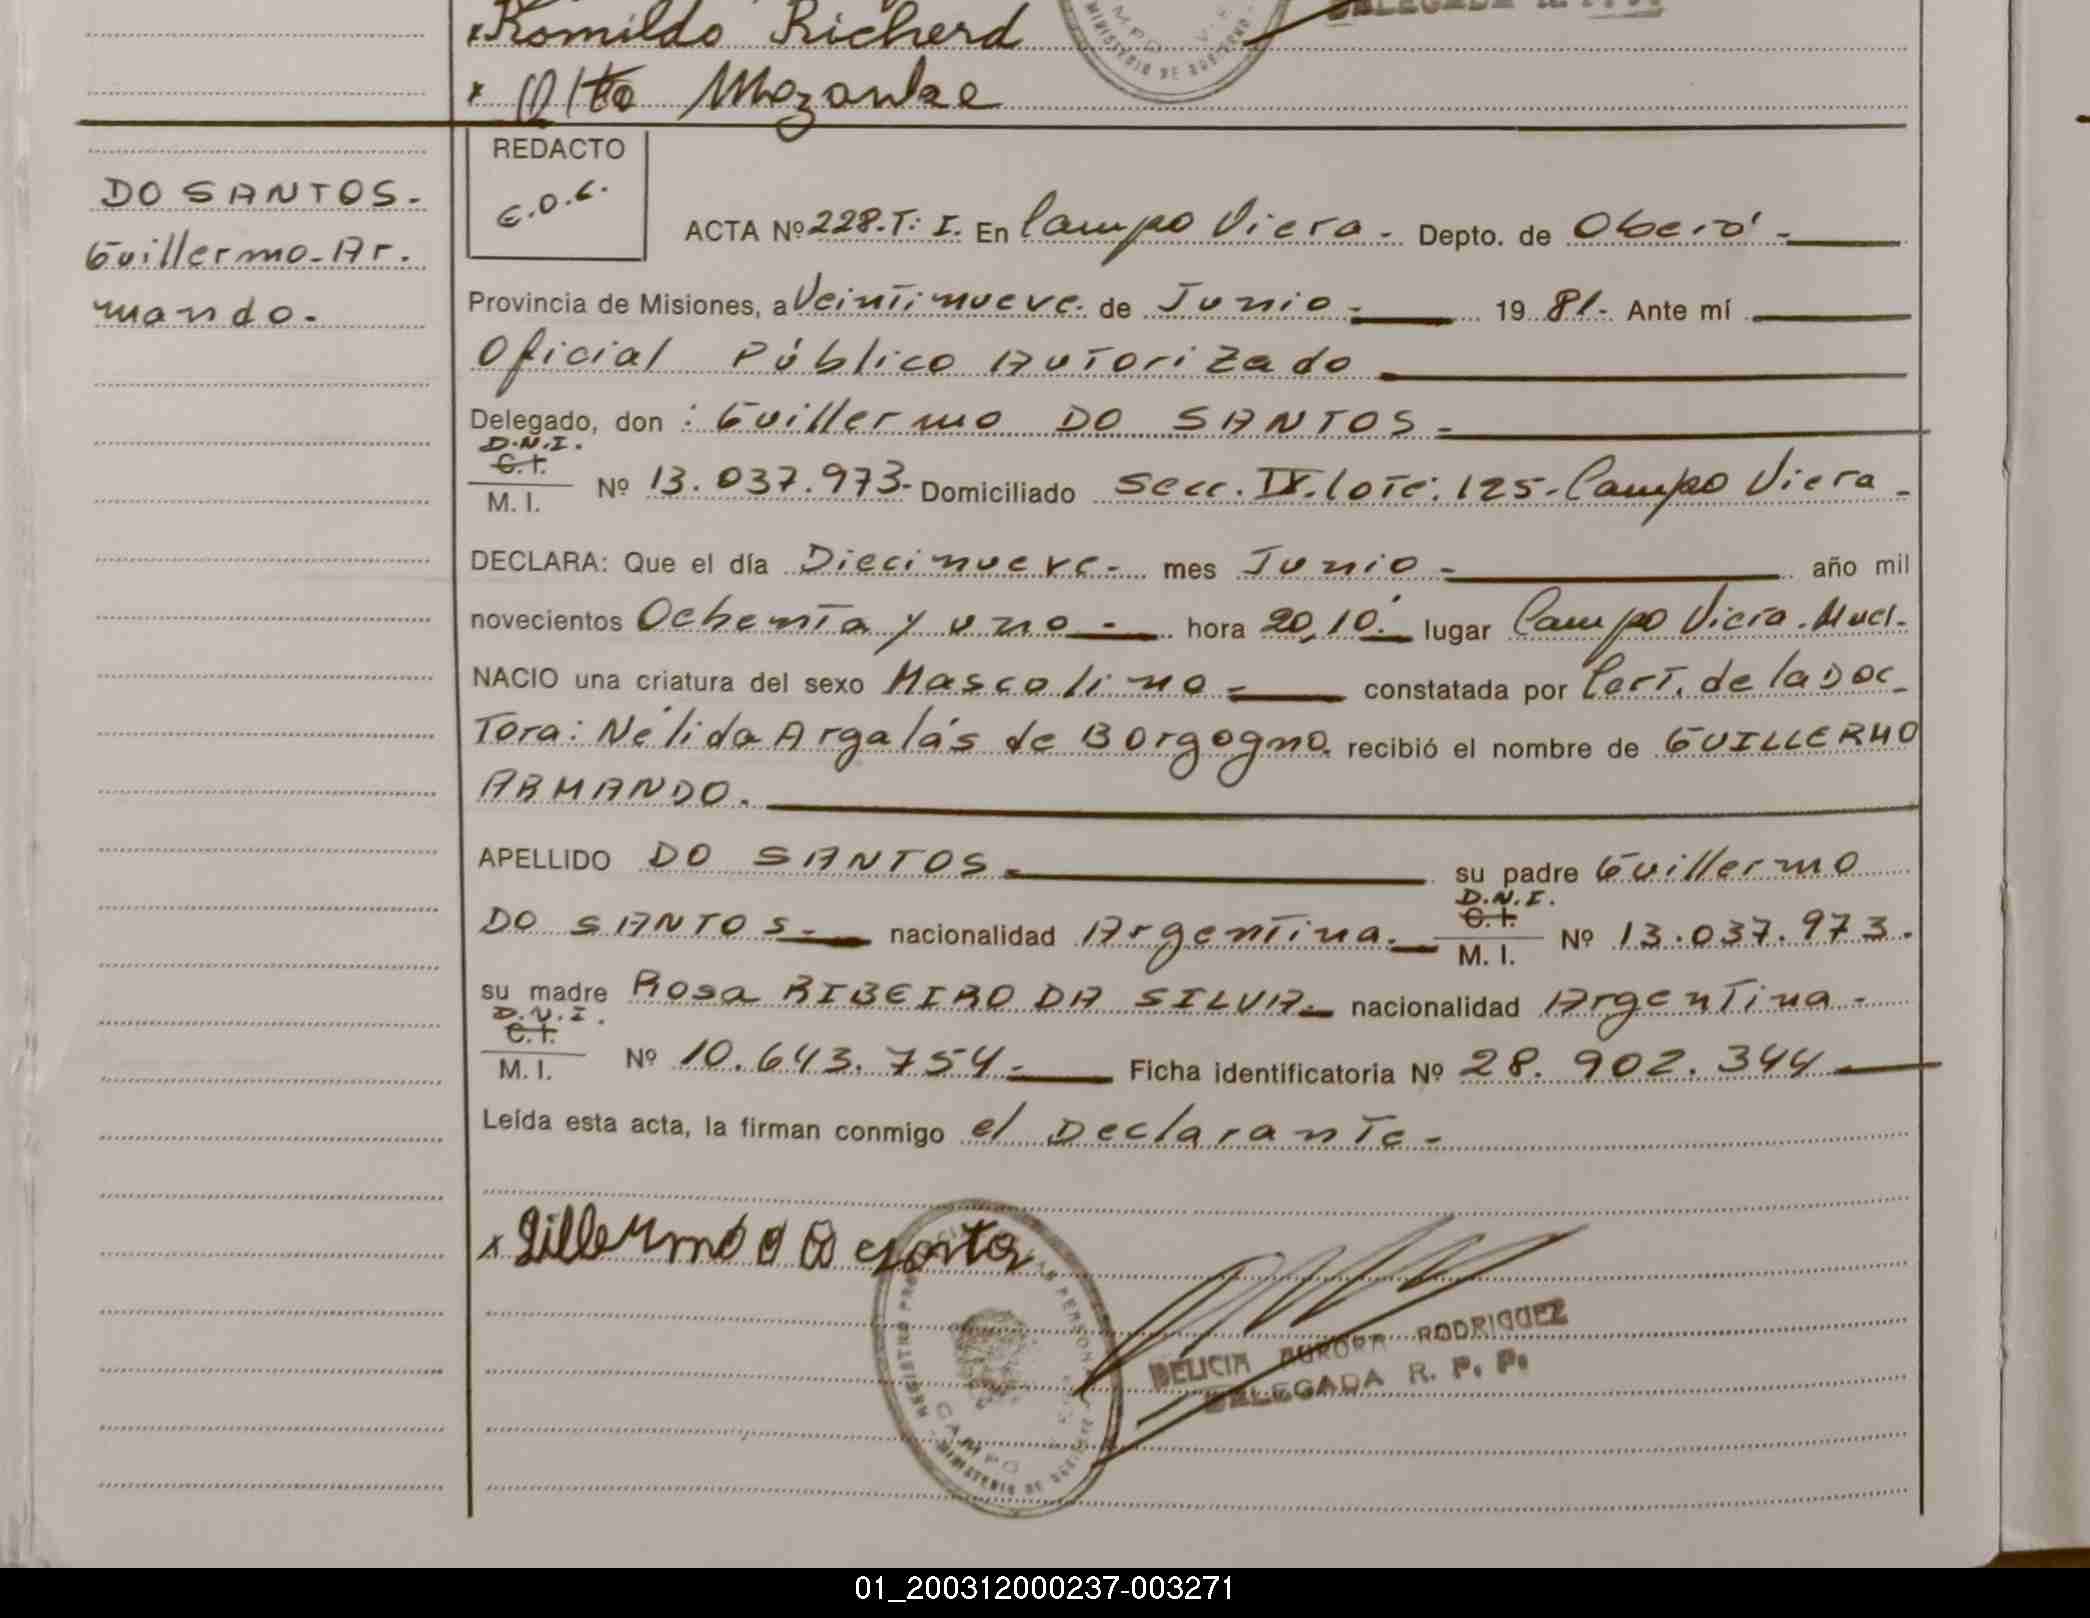 Romildo Richerd
DELEGADA R. P. P.
MINISTERIO DE GOBIERNO
REDACTO
DO SANTOS.
E.O.C.
Guillermo-Ar.
ACTA Nº 228.T: I. En Campo Viera - Depto. de Oberá -
mando.
Provincia de Misiones, a Veintinueve. de Junio - 19 81.- Ante mí
Oficial Público Autorizado
Delegado, don : Guillermo DO SANTOS -
D.N.I.
C.I.
M. I. Nº 13.037.973- Domiciliado Secc. IX. lote. 125- Campo Viera -
DECLARA: Que el día Diecinueve - mes Junio - año mil
novecientos Ochenta y uno - hora 20,10' lugar Campo Viera.
NACIO una criatura del sexo Mascolino - constatada por Cert. de la Doc_
tora: Nélida Argalás de Borgogno. recibió el nombre de GUILLERMO
ARMANDO.
APELLIDO DO SANTOS. su padre Guillermo
D.N.I.
C.I.
DO SANTOS.- nacionalidad Argentina. M. I. Nº 13.037.973.
su madre Rosa RIBEIRO DA SILVA. nacionalidad Argentina -
D.N.I.
C.I.
M. I. Nº 10.643.754- Ficha identificatoria Nº 28.902.344
Leída esta acta, la firman conmigo el Declarante -
DELICIA AURORA RODRIGUEZ
DELEGADA R. P. P.
CAMPO
MINISTERIO DE GOBIERNO
01_200312000237-003271